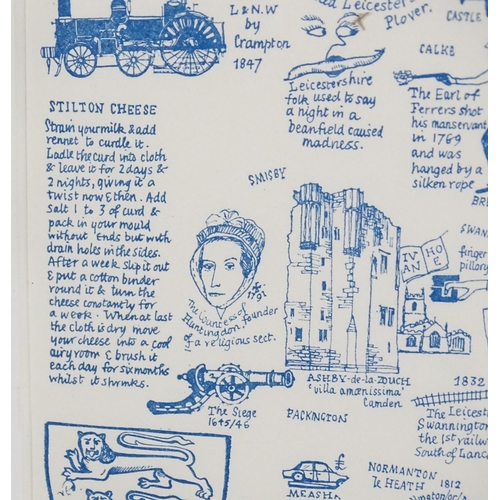 L & N.W
by
Crampton
1847
Leicester
Plover.
CASTLE
CALKE
Leicestershire
folk used to say
a night in a
beanfield caused
madness.
The Earl of
Ferrers shot
his manservant
in 1769
and was
hanged by a
silken rope
STILTON CHEESE
Strain your milk & add
rennet to curdle it.
Ladle the curd into cloth
& leave it for 2 days &
2 nights, giving it a
twist now & then. Add
salt 1 to 3 of curd &
pack in your mould
without ends but with
drain holes in the sides.
After a week slip it out
& put a cotton binder
round it & turn the
cheese constantly for
a week. When at last
the cloth is dry move
your cheese into a cool
airy room & brush it
each day for six months
whilst it shrinks.
SMISBY
The Countess of
Huntingdon, founder
of a religious sect.
1791
IV
AN
HO
E
finger
pillory
ASHBY-de-la-ZOUCH
'villa amœnissima'
Camden
The Siege
1645/46
PACKINGTON
1832
The Leicester
Swannington
the 1st railw
South of Lanca
£
MEASHA
NORMANTON
le HEATH
1812